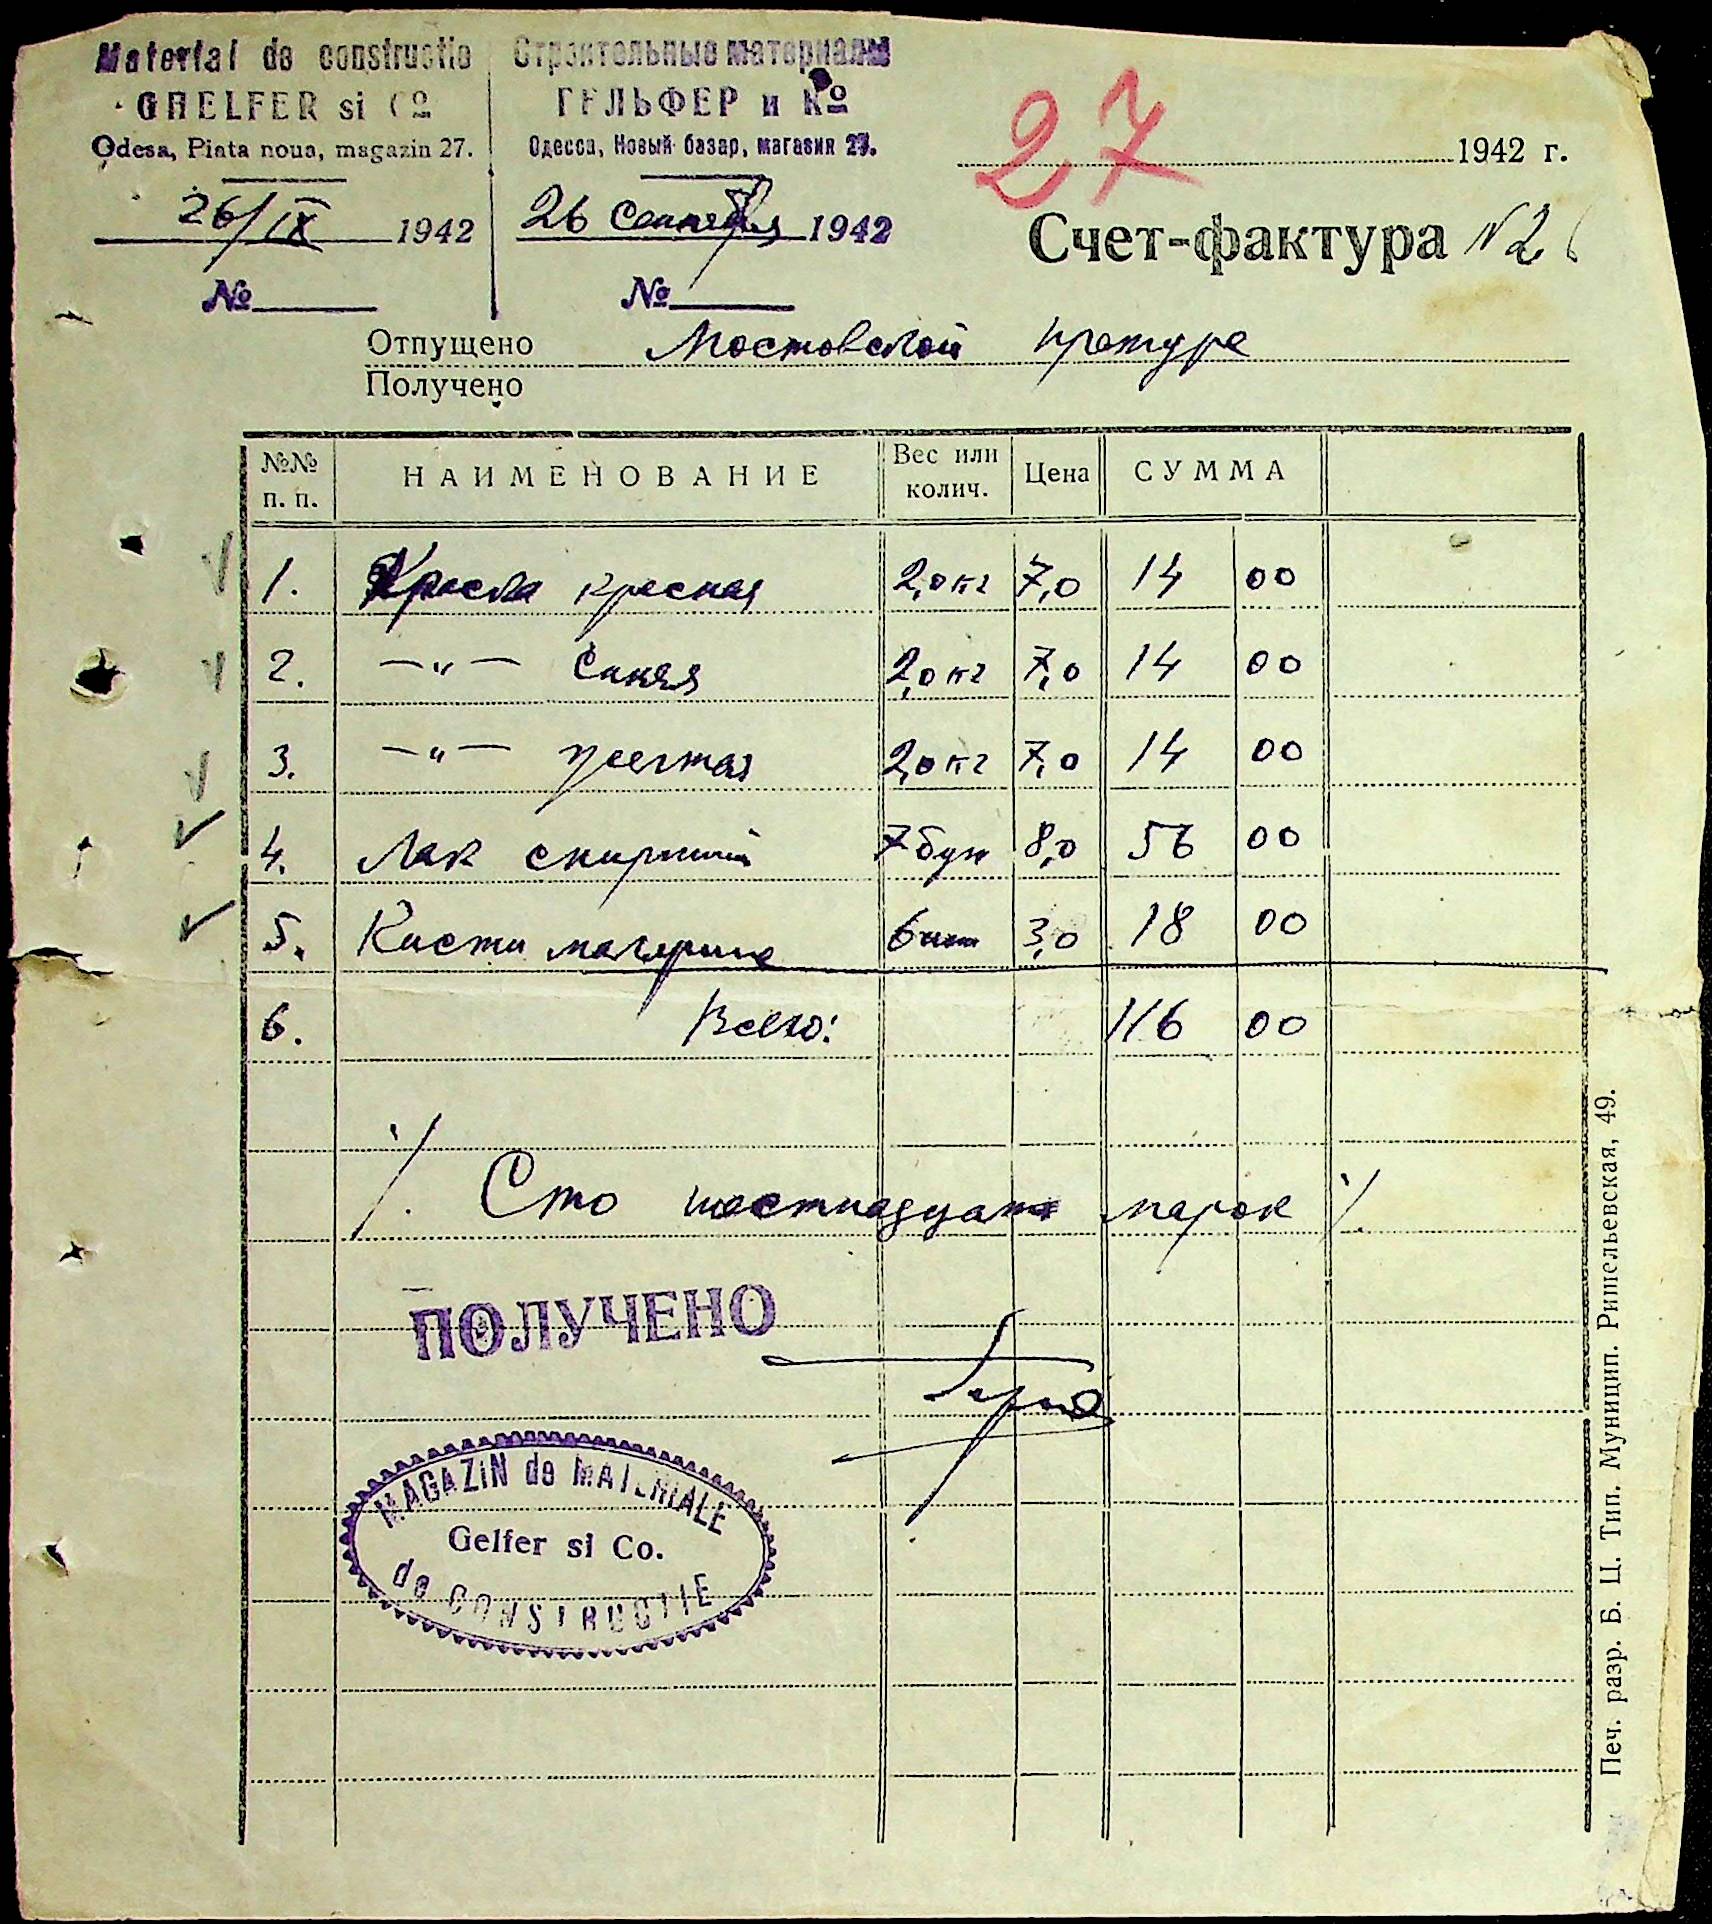 Material de constructie
GHELFER si Co
Odesa, Piata noua, magazin 27.
26/IX 1942
№
Строительные материалы
ГЕЛЬФЕР и Ко
Одесса, Новый базар, магазин 27.
26 Сентября 1942
№
27
1942 г.
Счет-фактура N 2
Отпущено Мостовской претуре
Получено
№№ п. п. НАИМЕНОВАНИЕ Вес или колич. Цена СУММА
1. Краска красная 2,0 кг 7,0 14 00
2. —"— Синяя 2,0 кг 7,0 14 00
3. —"— 2,0 кг 7,0 14 00
4. Лак спиртный 7 бут 8,0 56 00
5. Кисти малярные 6 шт 3,0 18 00
6. Всего: 116 00
Сто шестнадцать марок
ПОЛУЧЕНО
MAGAZIN de MATERIALE
Gelfer si Co.
de CONSTRUCTIE
Печ. разр. Б. Ц. Тип. Муницип. Ришельевская, 49.